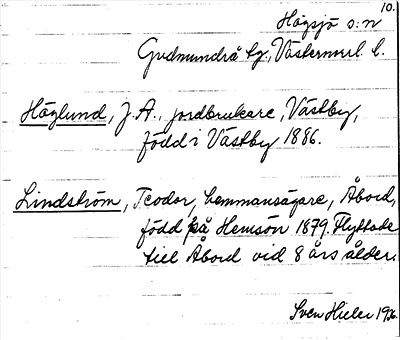 10.
Högsjö s:n
Gudmundrå tg., Västernorrl. l.
Höglund, J.A., jordbrukare, Västby,
född i Västby 1886.
Lindström, Teodor, hemmansägare, Åbord,
född på Hemsön 1879. Flyttade
till Åbord vid 8 års ålder.
Sven Hieler 1936.